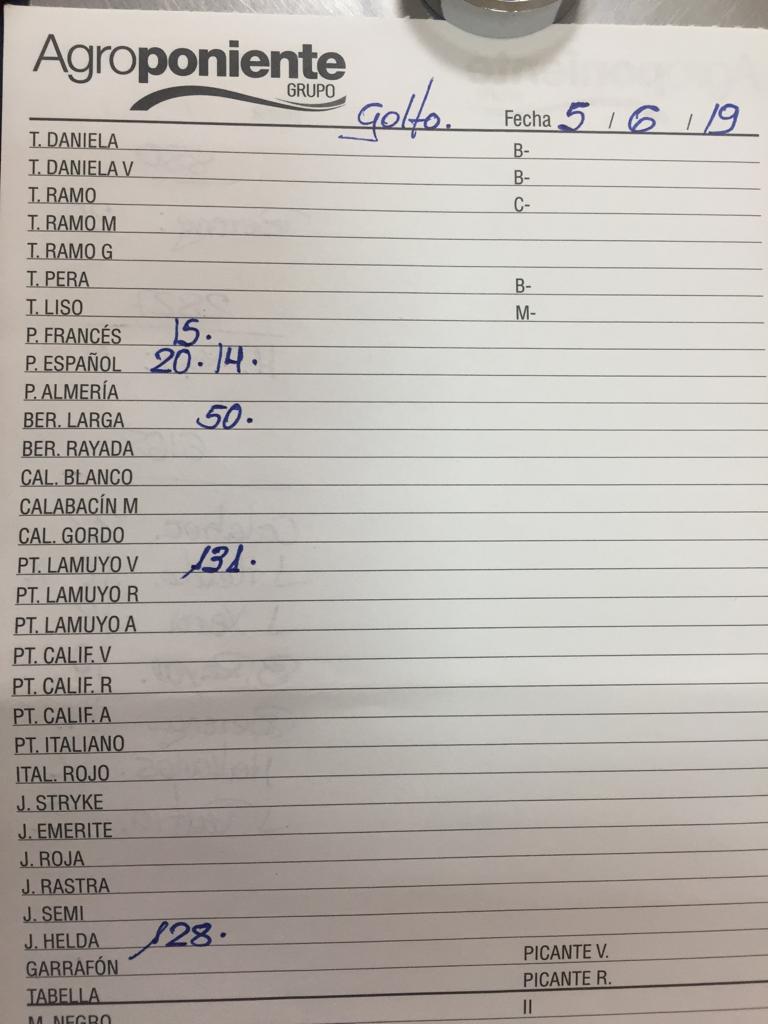 Agroponiente
GRUPO
Golfo. Fecha 5 / 6 / 19
T. DANIELA B-
T. DANIELA V B-
T. RAMO C-
T. RAMO M
T. RAMO G
T. PERA B-
T. LISO M-
P. FRANCÉS 15.
P. ESPAÑOL 20. 14.
P. ALMERÍA
BER. LARGA 50.
BER. RAYADA
CAL. BLANCO
CALABACÍN M
CAL. GORDO
PT. LAMUYO V 131.
PT. LAMUYO R
PT. LAMUYO A
PT. CALIF. V
PT. CALIF. R
PT. CALIF. A
PT. ITALIANO
ITAL. ROJO
J. STRYKE
J. EMERITE
J. ROJA
J. RASTRA
J. SEMI
J. HELDA 128.
GARRAFÓN PICANTE V.
TABELLA PICANTE R.
M. NEGRO II